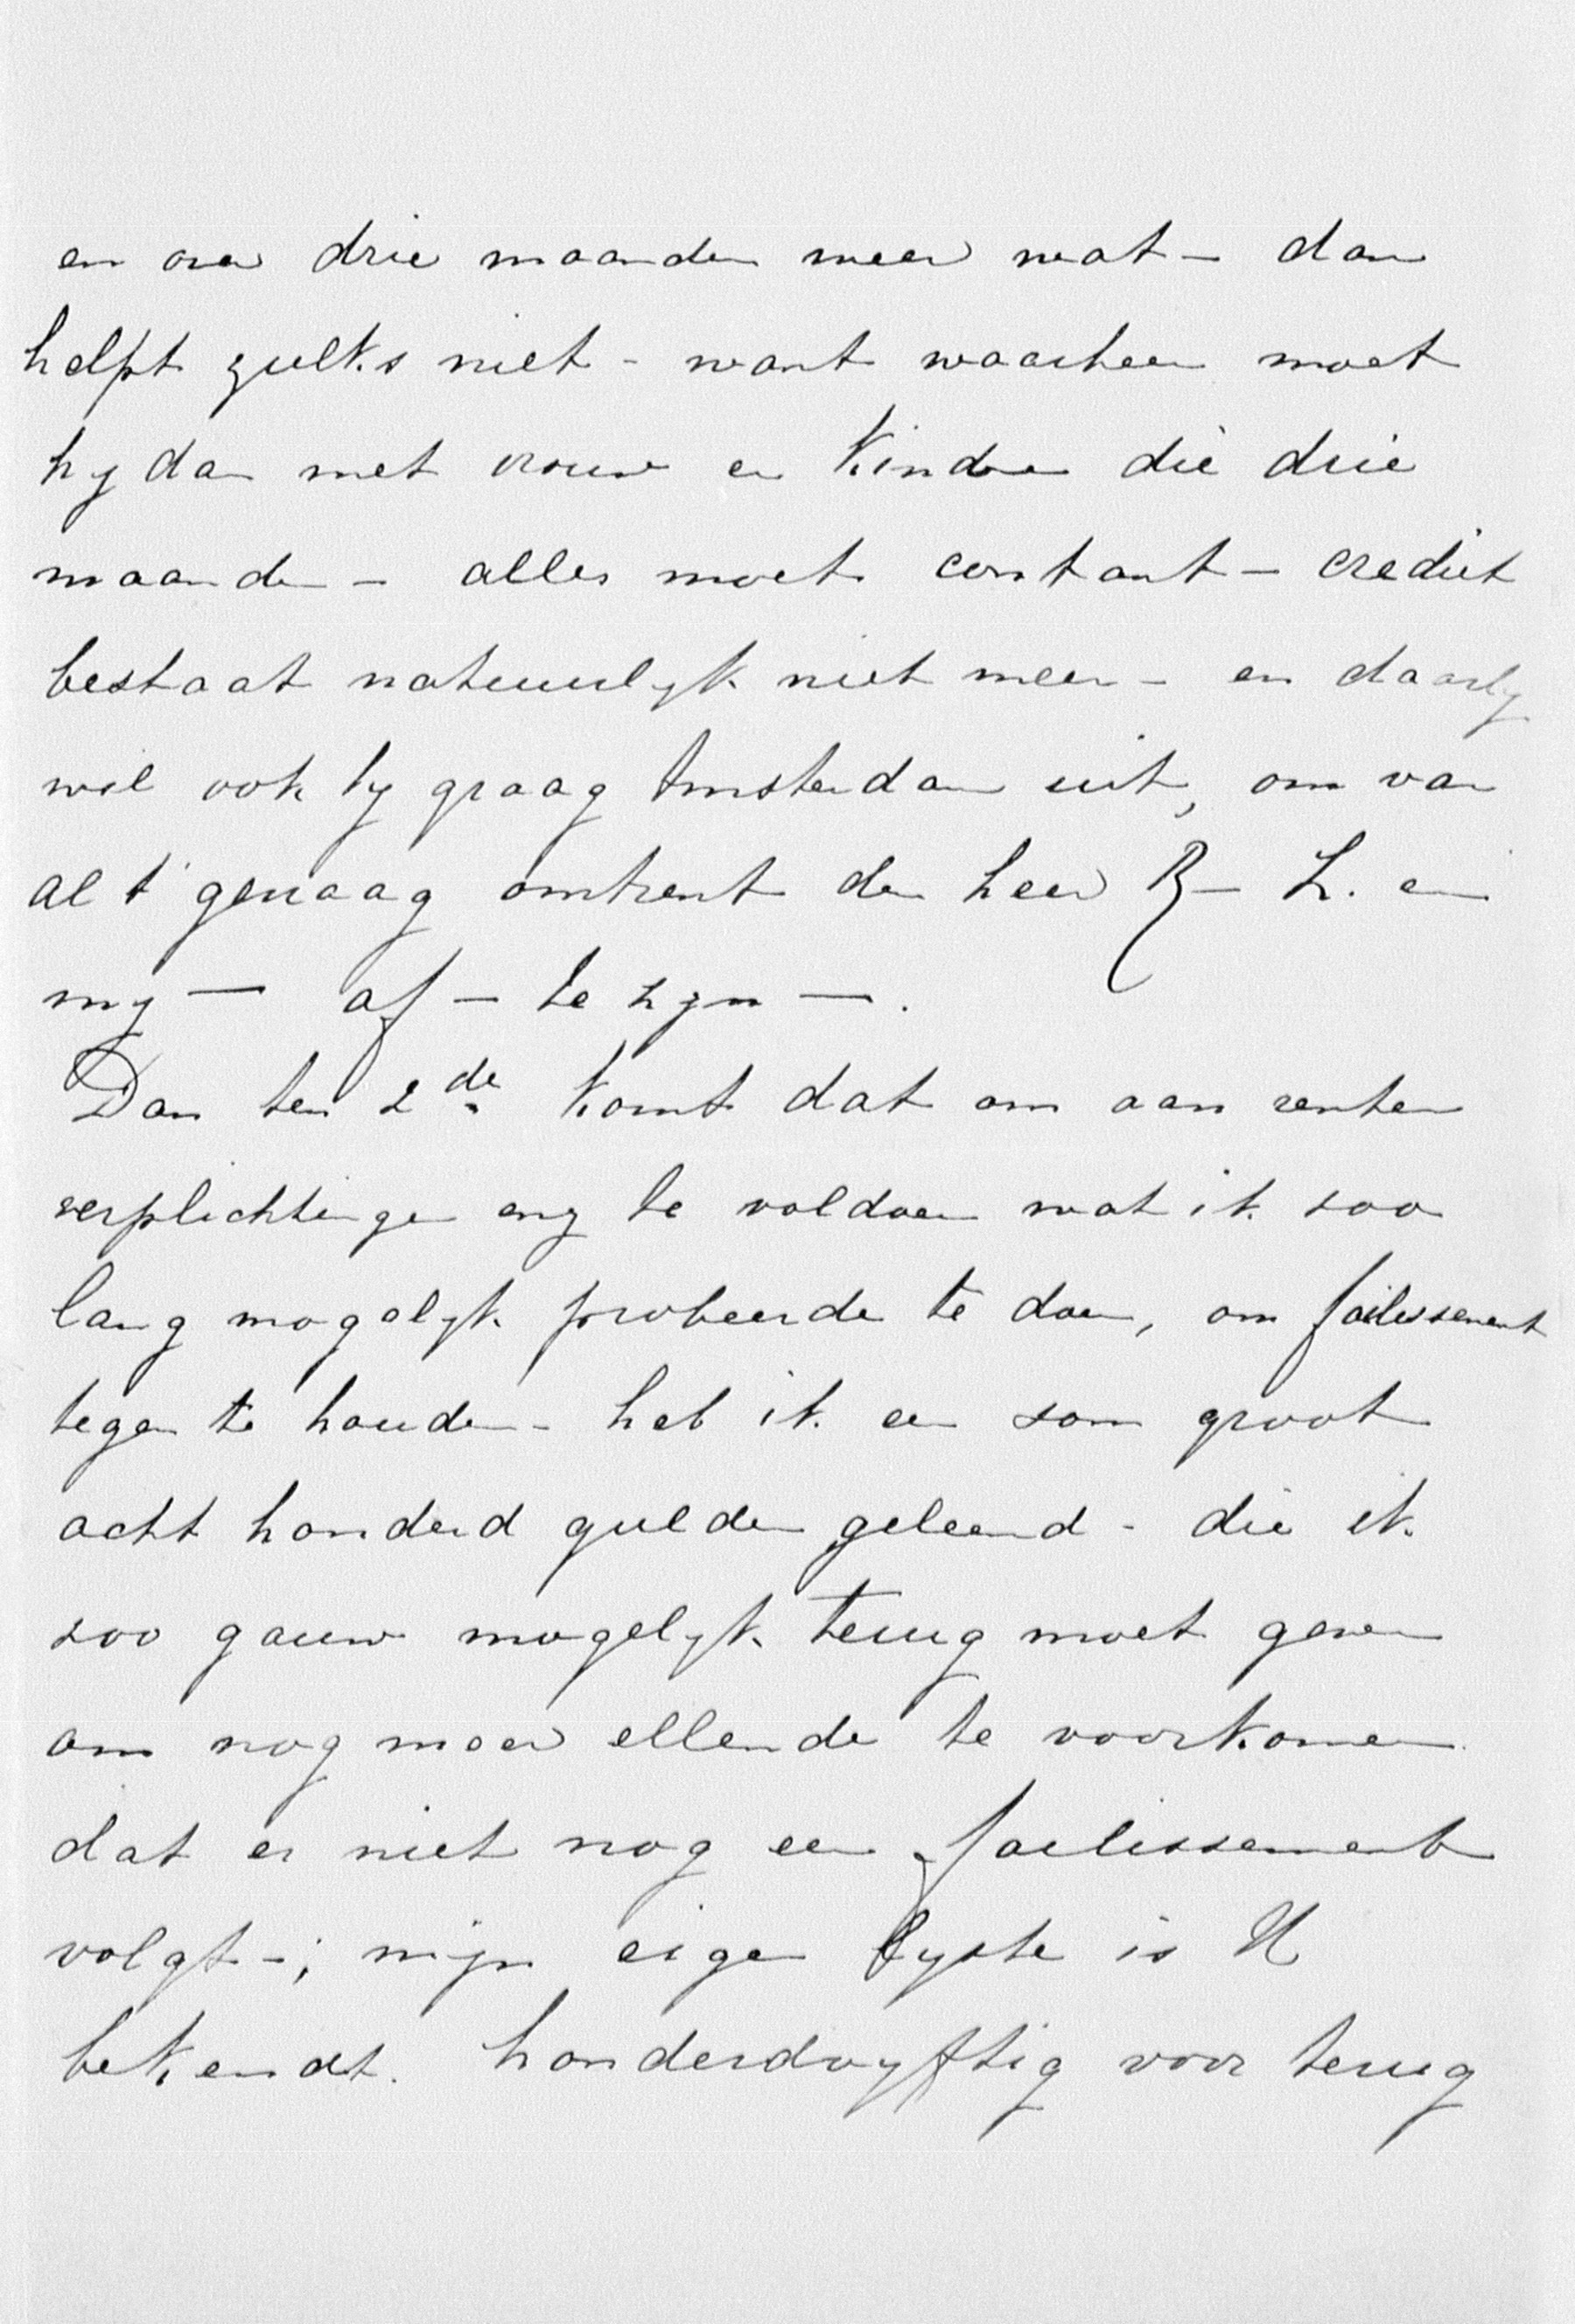 en over drie maanden weer wat – dan
helpt zulks niet – want waarheen moet
hy dan met vrouw en kinderen die drie
maanden – alles moet contant – crediet
bestaat natuurlyk niet meer – en daarby
wil ook hy graag Amsterdam uit, om van
al t' gevraag omtrent den heer R– L. en
my — af – te zyn —.
Dan ten 2de komt dat om aan renten
verplichtingen enz te voldoen wat ik soo
lang mogelyk probeerde te doen, om failissement
tegen te houden – heb ik een som groot
acht honderd gulden geleend – die ik
soo gauw mogelyk terug moet geven
om nog meer ellende te voorkomen
dat er niet nog een failissement
volgt –; mijn eigen lyste is U
bekendt. honderdvyftig voor terug